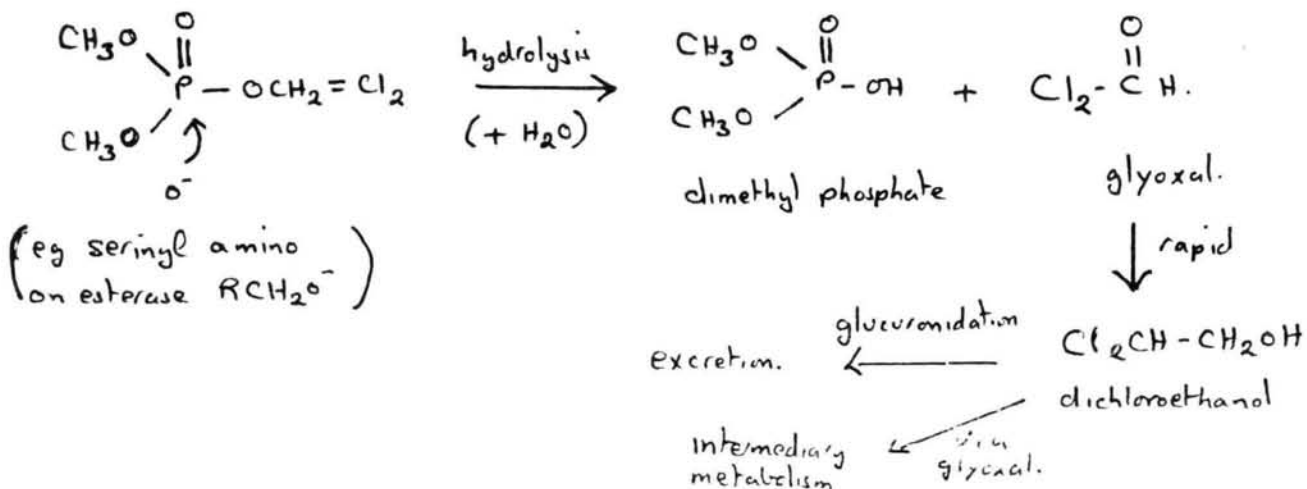 CH3O
O
P - OCH2 = Cl2
CH3O
O-
(eg serinyl amino
on esterase RCH2O-)
hydrolysis
(+ H2O)
CH3O
O
P - OH
CH3O
dimethyl phosphate
+
O
Cl2 - C H.
glyoxal.
rapid
Cl2CH - CH2OH
dichloroethanol
glucuronidation
excretion.
via
glyoxal.
intermediary
metabolism